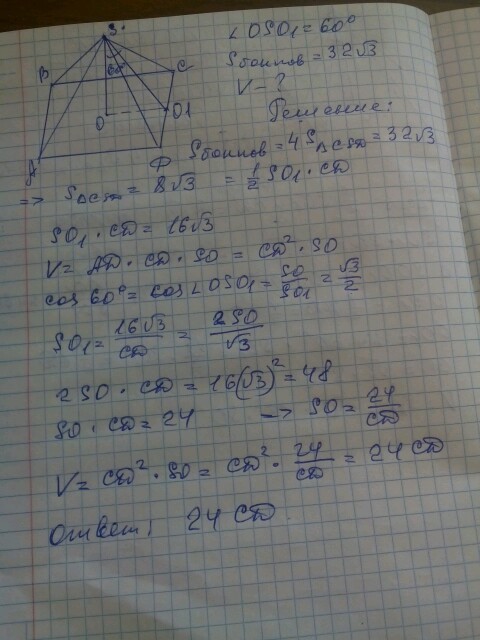 S
60°
B
C
O
O1
A
D
∠OSO₁ = 60°
Sбоков = 32√3
V - ?
Решение:
Sбоков = 4S△CSD = 32√3
=> S△CSD = 8√3 = 1/2 SO₁ · CD
SO₁ · CD = 16√3
V = AD · CD · SO = CD² · SO
cos 60° = cos ∠OSO₁ = SO/SO₁ = √3/2
SO₁ = 16√3/CD = 2SO/√3
2SO · CD = 16(√3)² = 48
SO · CD = 24 —> SO = 24/CD
V = CD² · SO = CD² · 24/CD = 24 CD
Ответ: 24 CD